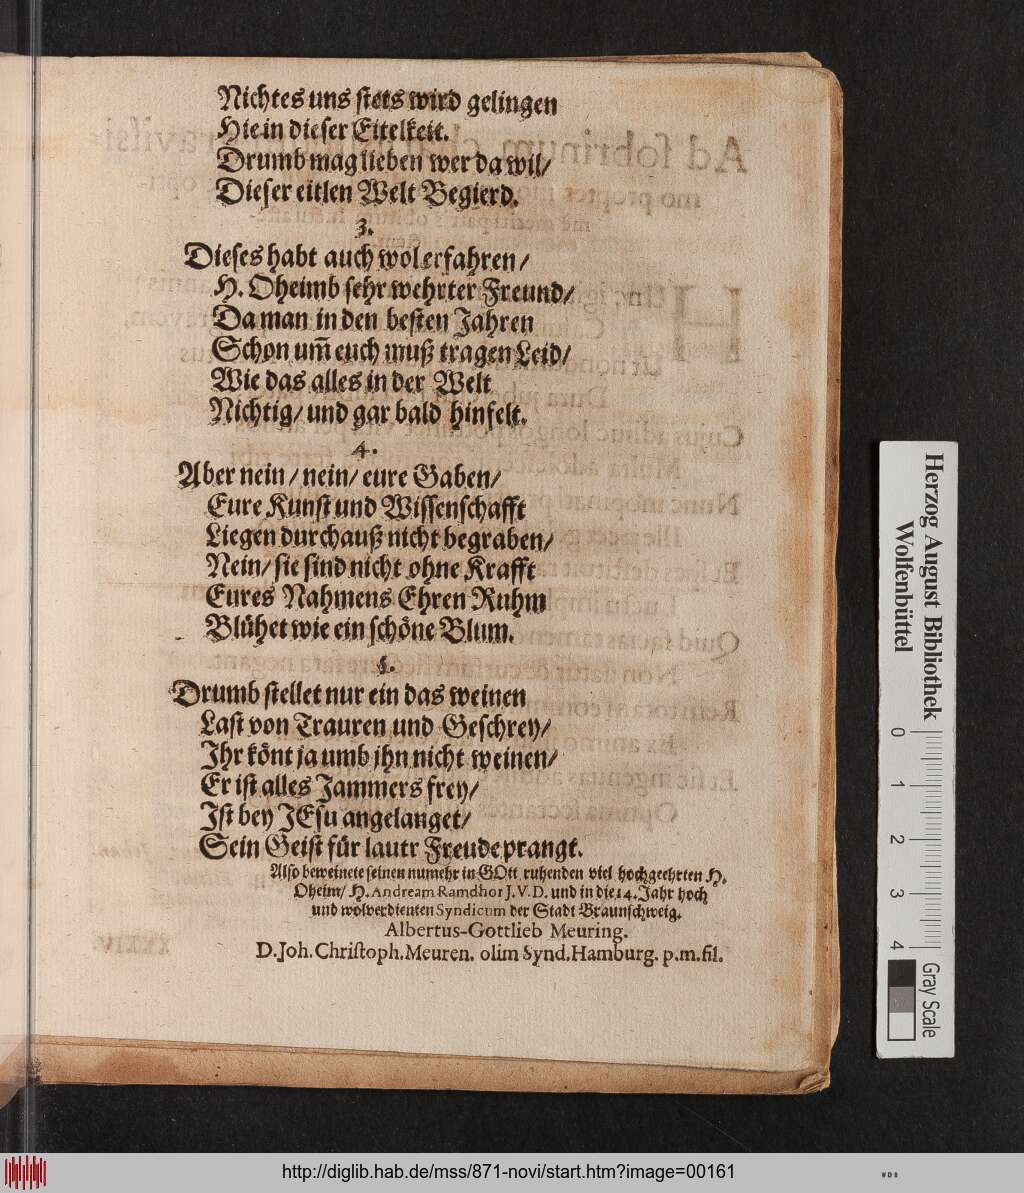 Nichtes uns stets wird gelingen
Hie in dieser Eitelkeit.
Drumb mag lieben wer da wil/
Dieser eitlen Welt Begierd.
3.
Dieses habt auch wol erfahren/
H. Oheimb sehr wehrter Freund/
Da man in den besten Jahren
Schon um̃ euch muß tragen Leid/
Wie das alles in der Welt
Nichtig/ und gar bald hinfelt.
4.
Aber nein/ nein/ eure Gaben/
Eure Kunst und Wissenschafft
Liegen durchauß nicht begraben/
Nein/ sie sind nicht ohne Krafft
Eures Nahmens Ehren Ruhm
Blühet wie ein schöne Blum.
5.
Drumb stellet nur ein das weinen
Last von Trauren und Geschrey/
Ihr könt ja umb ihn nicht weinen/
Er ist alles Jammers frey/
Ist bey JEsu angelanget/
Sein Geist für lautr Freude prangt.
Also beweinete seinen numehr in GOtt ruhenden viel hochgeehrten H.
Oheim/ H. Andream Ramdhor J.V.D. und in die 14. Jahr hoch
und wolverdienten Syndicum der Stadt Braunschweig.
Albertus-Gottlieb Meuring.
D. Joh. Christoph. Meuren. olim Synd. Hamburg. p.m. fil.
Herzog August Bibliothek
Wolfenbüttel
0 1 2 3 4
Gray Scale
http://diglib.hab.de/mss/871-novi/start.htm?image=00161